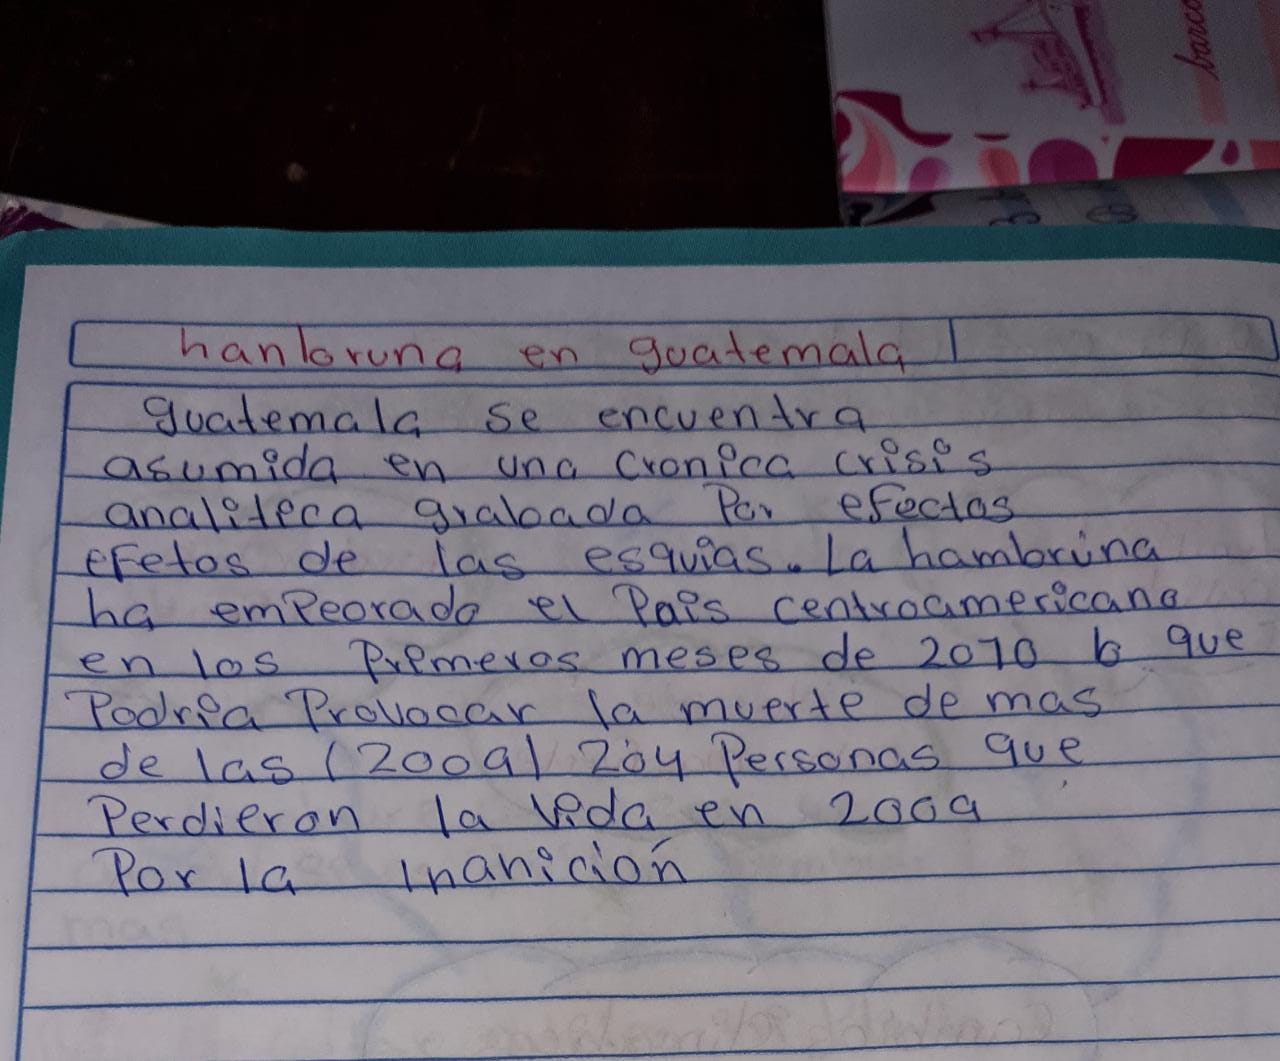 barco
hanbruna en guatemala
guatemala se encuentra
asumida en una cronica crisis
analiteca grabada Por efectos
efetos de las esquias. La hambrúna
ha empeorado el Pais centroamericano
en los Premeros meses de 2010 lo que
Podria Provocar la muerte de mas
de las (2009) 204 Personas que
Perdieron la vida en 2009
Por la Inanición